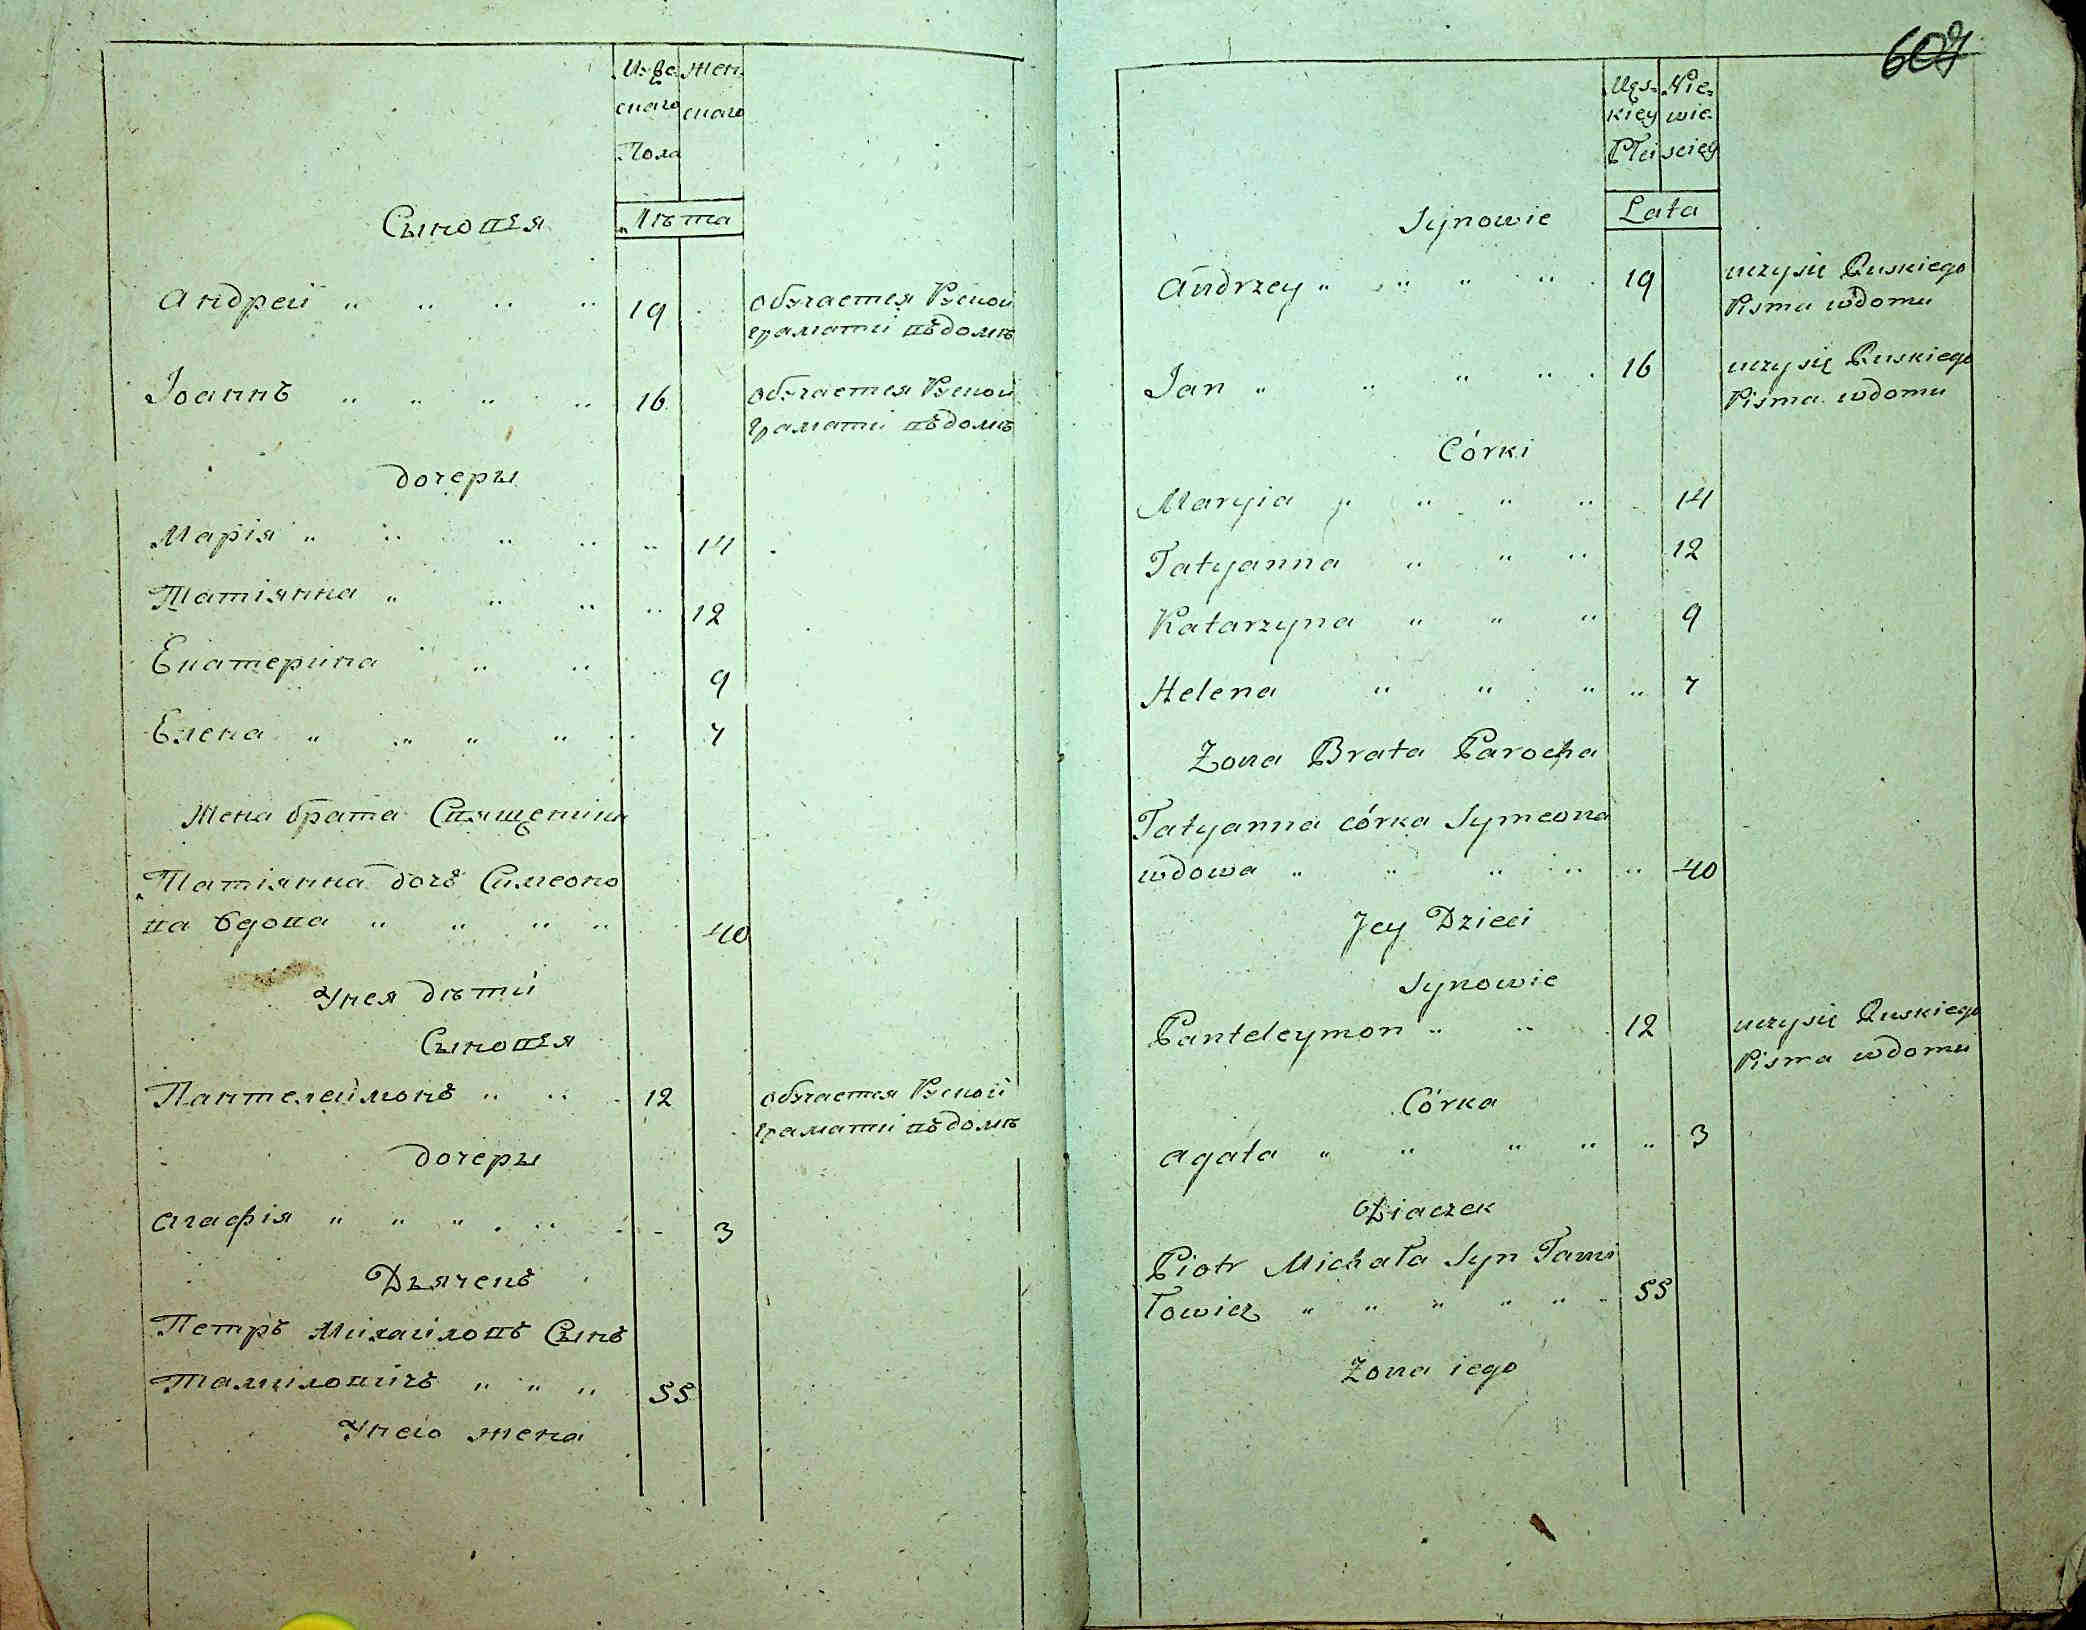 Муже Жен
скаго скаго
Пола
Лѣта
Сыновья
Андрей " " " " 19 обучается Руской
граматы въ домѣ
Іоаннъ " " " " 16 обучается Руской
граматы въ домѣ
дочеры
Марія " " " " " 14
Татіянна " " " " 12
Екатерина " " " 9
Елена " " " " 7
Жена брата Священника
Татіянна дочь Симеоно
ва Вдова " " " " 40
У нея дѣти
Сыновья
Пантелеймонъ " " 12 обучается Руской
граматы въ домѣ
дочеры
Агафія " " " " 3
Дьячекъ
Петръ Михайловъ Сынъ
Тамиловичъ " " " 55
У него жена
607
Męs= Nie=
kiey wie=
Płci sciey
Lata
Synowie
Andrzey " " " " 19 uczy się Ruskiego
Pisma w domu
Jan " " " " 16 uczy się Ruskiego
Pisma w domu
Córki
Maryia " " " " 14
Tatyanna " " " 12
Katarzyna " " " 9
Helena " " " " 7
Żona Brata Parocha
Tatyanna córka Symeona
wdowa " " " " " 40
Jey Dzieci
Synowie
Panteleymon " " 12 uczy się Ruskiego
Pisma w domu
Córka
Agata " " " " " 3
Dziaczek
Piotr Michała Syn Tami
łowicz " " " " " 55
Żona iego